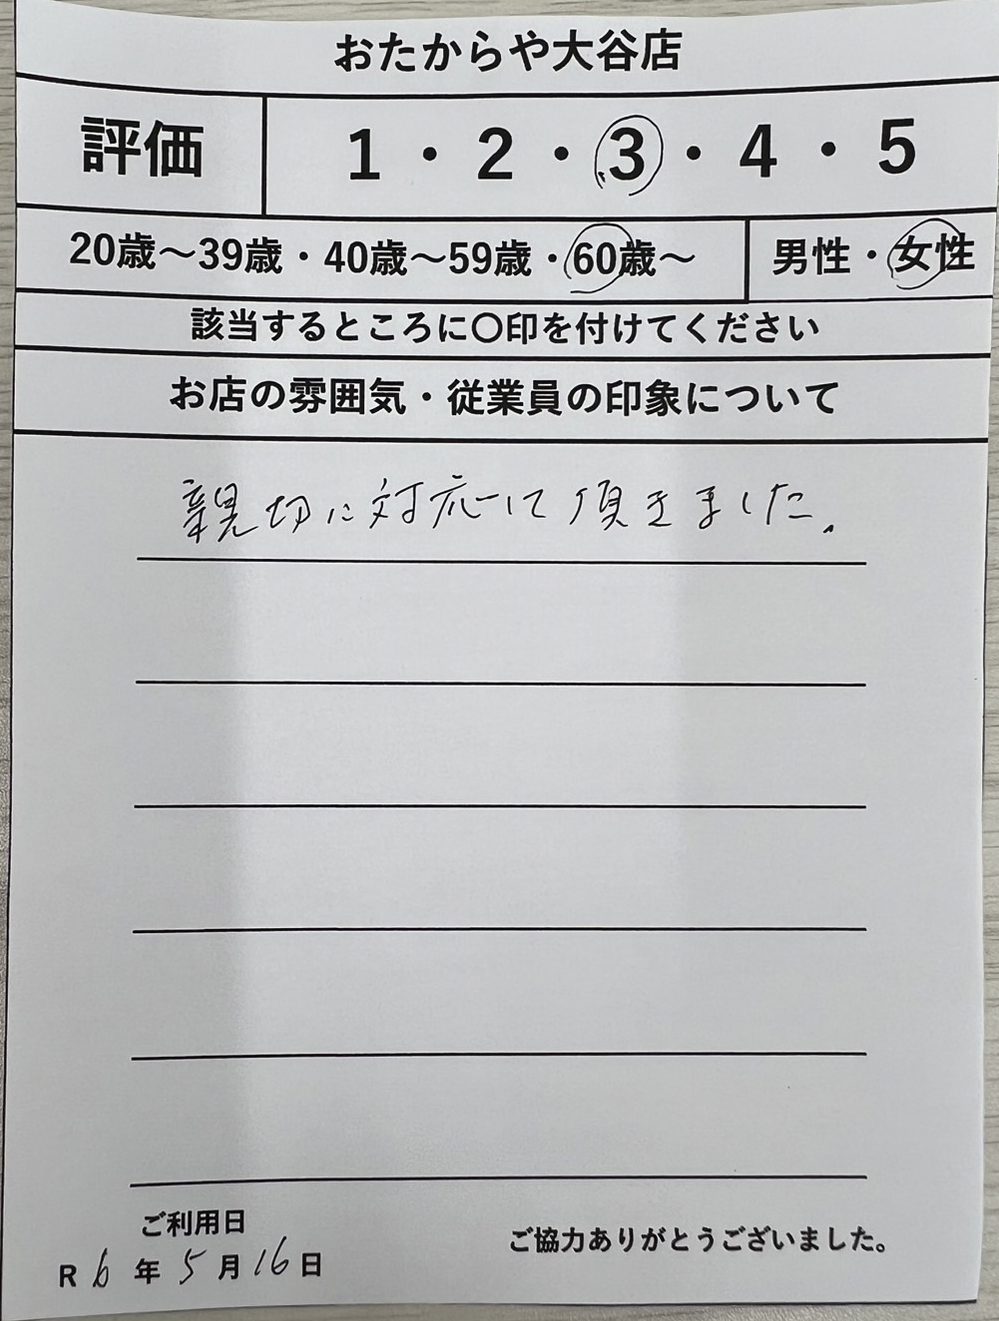 おたからや大谷店
評価 1・2・3・4・5
20歳～39歳・40歳～59歳・60歳～ 男性・女性
該当するところに〇印を付けてください
お店の雰囲気・従業員の印象について
親切に対応して頂きました。
ご利用日
R6年5月16日
ご協力ありがとうございました。